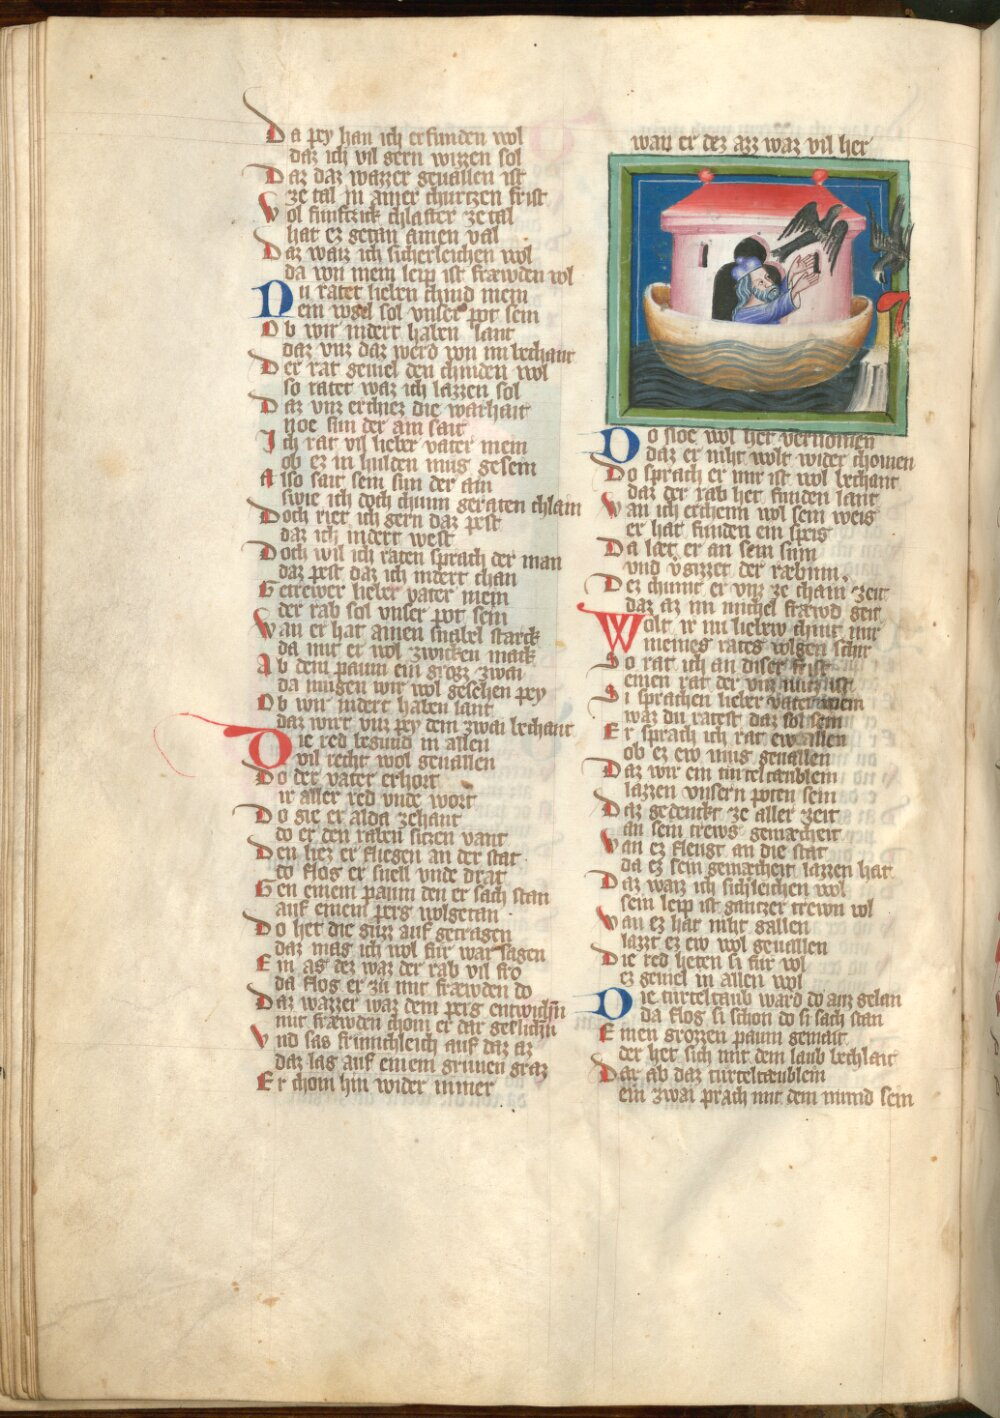 Da pey han ich erfunden wol
daz ich vil gern wizzen sol
Daz daz wazzer geuallen ist
ze tal in ainer churtzen frist
Wol funftzick chlafter ze tal
hat ez getan ainen val
Daz waiz ich sicherleichen wol
da von mein leip ist fræwden vol
Nu ratet lieben chind mein
wen vogel sol vnser pot sein
Ob wir indert haben lant
daz vnz daz werd von im bechant
Der rat geuiel den chinden wol
so ratet waz ich lazzen sol
Daz vnz erchiez die warhait
noe sun der ain sait
Ich rat vil lieber vater mein
ob ez in hulden mug gesein
Also sait sein sun der ain
swie ich doch chunn geraten chlain
Doch riet ich gern daz pest
daz ich indert west
Doch wil ich raten sprach der man
daz pest daz ich indert chan
Getrewer lieber vater mein
der rab sol vnser pot sein
Wan er hat ainen snabel starck
da mit er wol zwicken mack
Ab dem paum ein grozz zwai
da mugen wir wol gesehen pey
Ob wir indert haben lant
daz wirt vnz pey dem zwai bechant
Die red begund in allen
vil recht wol geuallen
Do der vater erhort
ir aller red vnde wort
Do gie er alda zehant
do er den raben sitzen vant
Den liez er fliegen an der stat
do flog er snell vnde drat
Gen einem paum den er sach stan
auf einem perg wolgetan
Do het die guzz auf getragen
daz mag ich wol für war sagen
Ein as dez waz der rab vil fro
da flog er zu mit fræwden do
Daz wazzer waz dem perg entwichñ
mit fræwden chom er dar geslichñ
Vnd sas frimichleich auf daz az
daz lag auf einem grunen graz
Er chom hin wider nimer
wan er dez azz waz vil her
Do Noe wol het vernomen
daz er niht wolt wider chomen
Do sprach er mir ist wol bechant
daz der rab het funden lant
Wan ich erchenn wol sein weis
er hat funden ein speis
Da læt er an sein sinn
vnd v̈gizzet der ræbinn
Dez chumt er vnz ze chain zeit
daz az im michel fræwd geit
Wolt ir mi liebew chint mir
meines rates volgen schir
So rat ich an diser frist
einen rat der vnz nutz ist
Si sprachen lieber vater mein
waz du ratest daz sol sein
Er sprach ich rat ew allen
ob ez ew mug geuallen
Daz wir ein turteltæublein
lazzen vnsern poten sein
Daz gedenckt ze aller zeit
an sein trews gemæcheit
Wan ez fleugt an die stat
da ez sein gemæcheit lazzen hat
Daz waiz ich sich̓leichen wol
sein leip ist gantzer trewn vol
Wan ez hat niht gallen
lazzt ez ew wol geuallen
Die red heten si für wol
ez geuiel in allen wol
Die turteltaub ward do auz gelan
da flog si schon do si sach stan
Einen grozzen paum gemait
der het sich mit dem laub bechlait
Dar ab daz turteltæublein
ein zwai prach mit dem mund sein